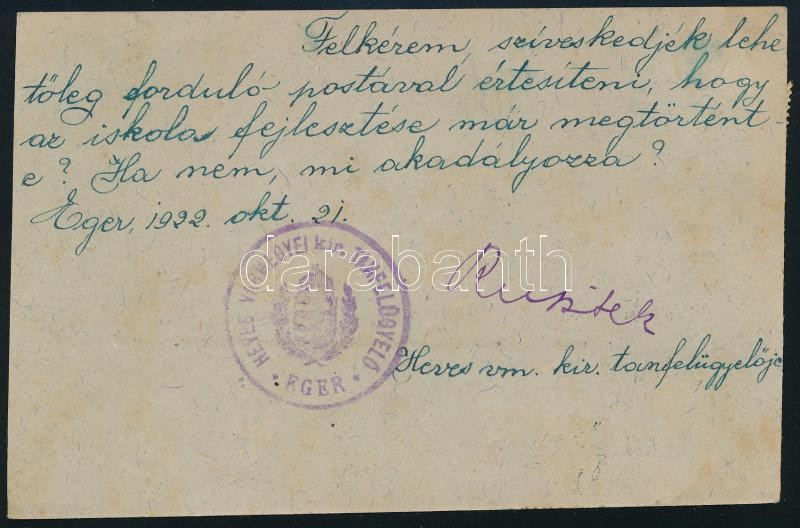 Felkérem, szíveskedjék lehe
tőleg forduló postával értesíteni, hogy
az iskola fejlesztése már megtörtént-
e? Ha nem, mi akadályozza?
Eger, 1922. okt. 21.
HEVES VÁRMEGYEI kir. TANFELÜGYELŐ
* EGER *
darabanth
Heves vm. kir. tanfelügyelője